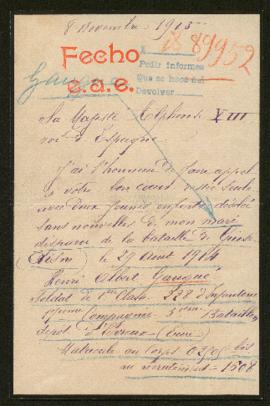 8 Novembre 1915
Fecho
e.a.e.
B 89952
Pedir informes
Que se hace del
Devolver
Sa Majesté Alphonse XIII
roi d'Espagne
J'ai l'honneur de faire appel
à votre bon cœur restée seule
avec deux jeunes enfants désolée
sans nouvelles de mon mari
disparu de la bataille de
29 Aout 1914
Henri Albert Gaugué
Soldat de 1ère Classe 228 d'Infanterie
Compagnie 5ème Bataillon
dépot d'Evreux (Eure)
Matricule au Corps bis
au recrutement - 1508